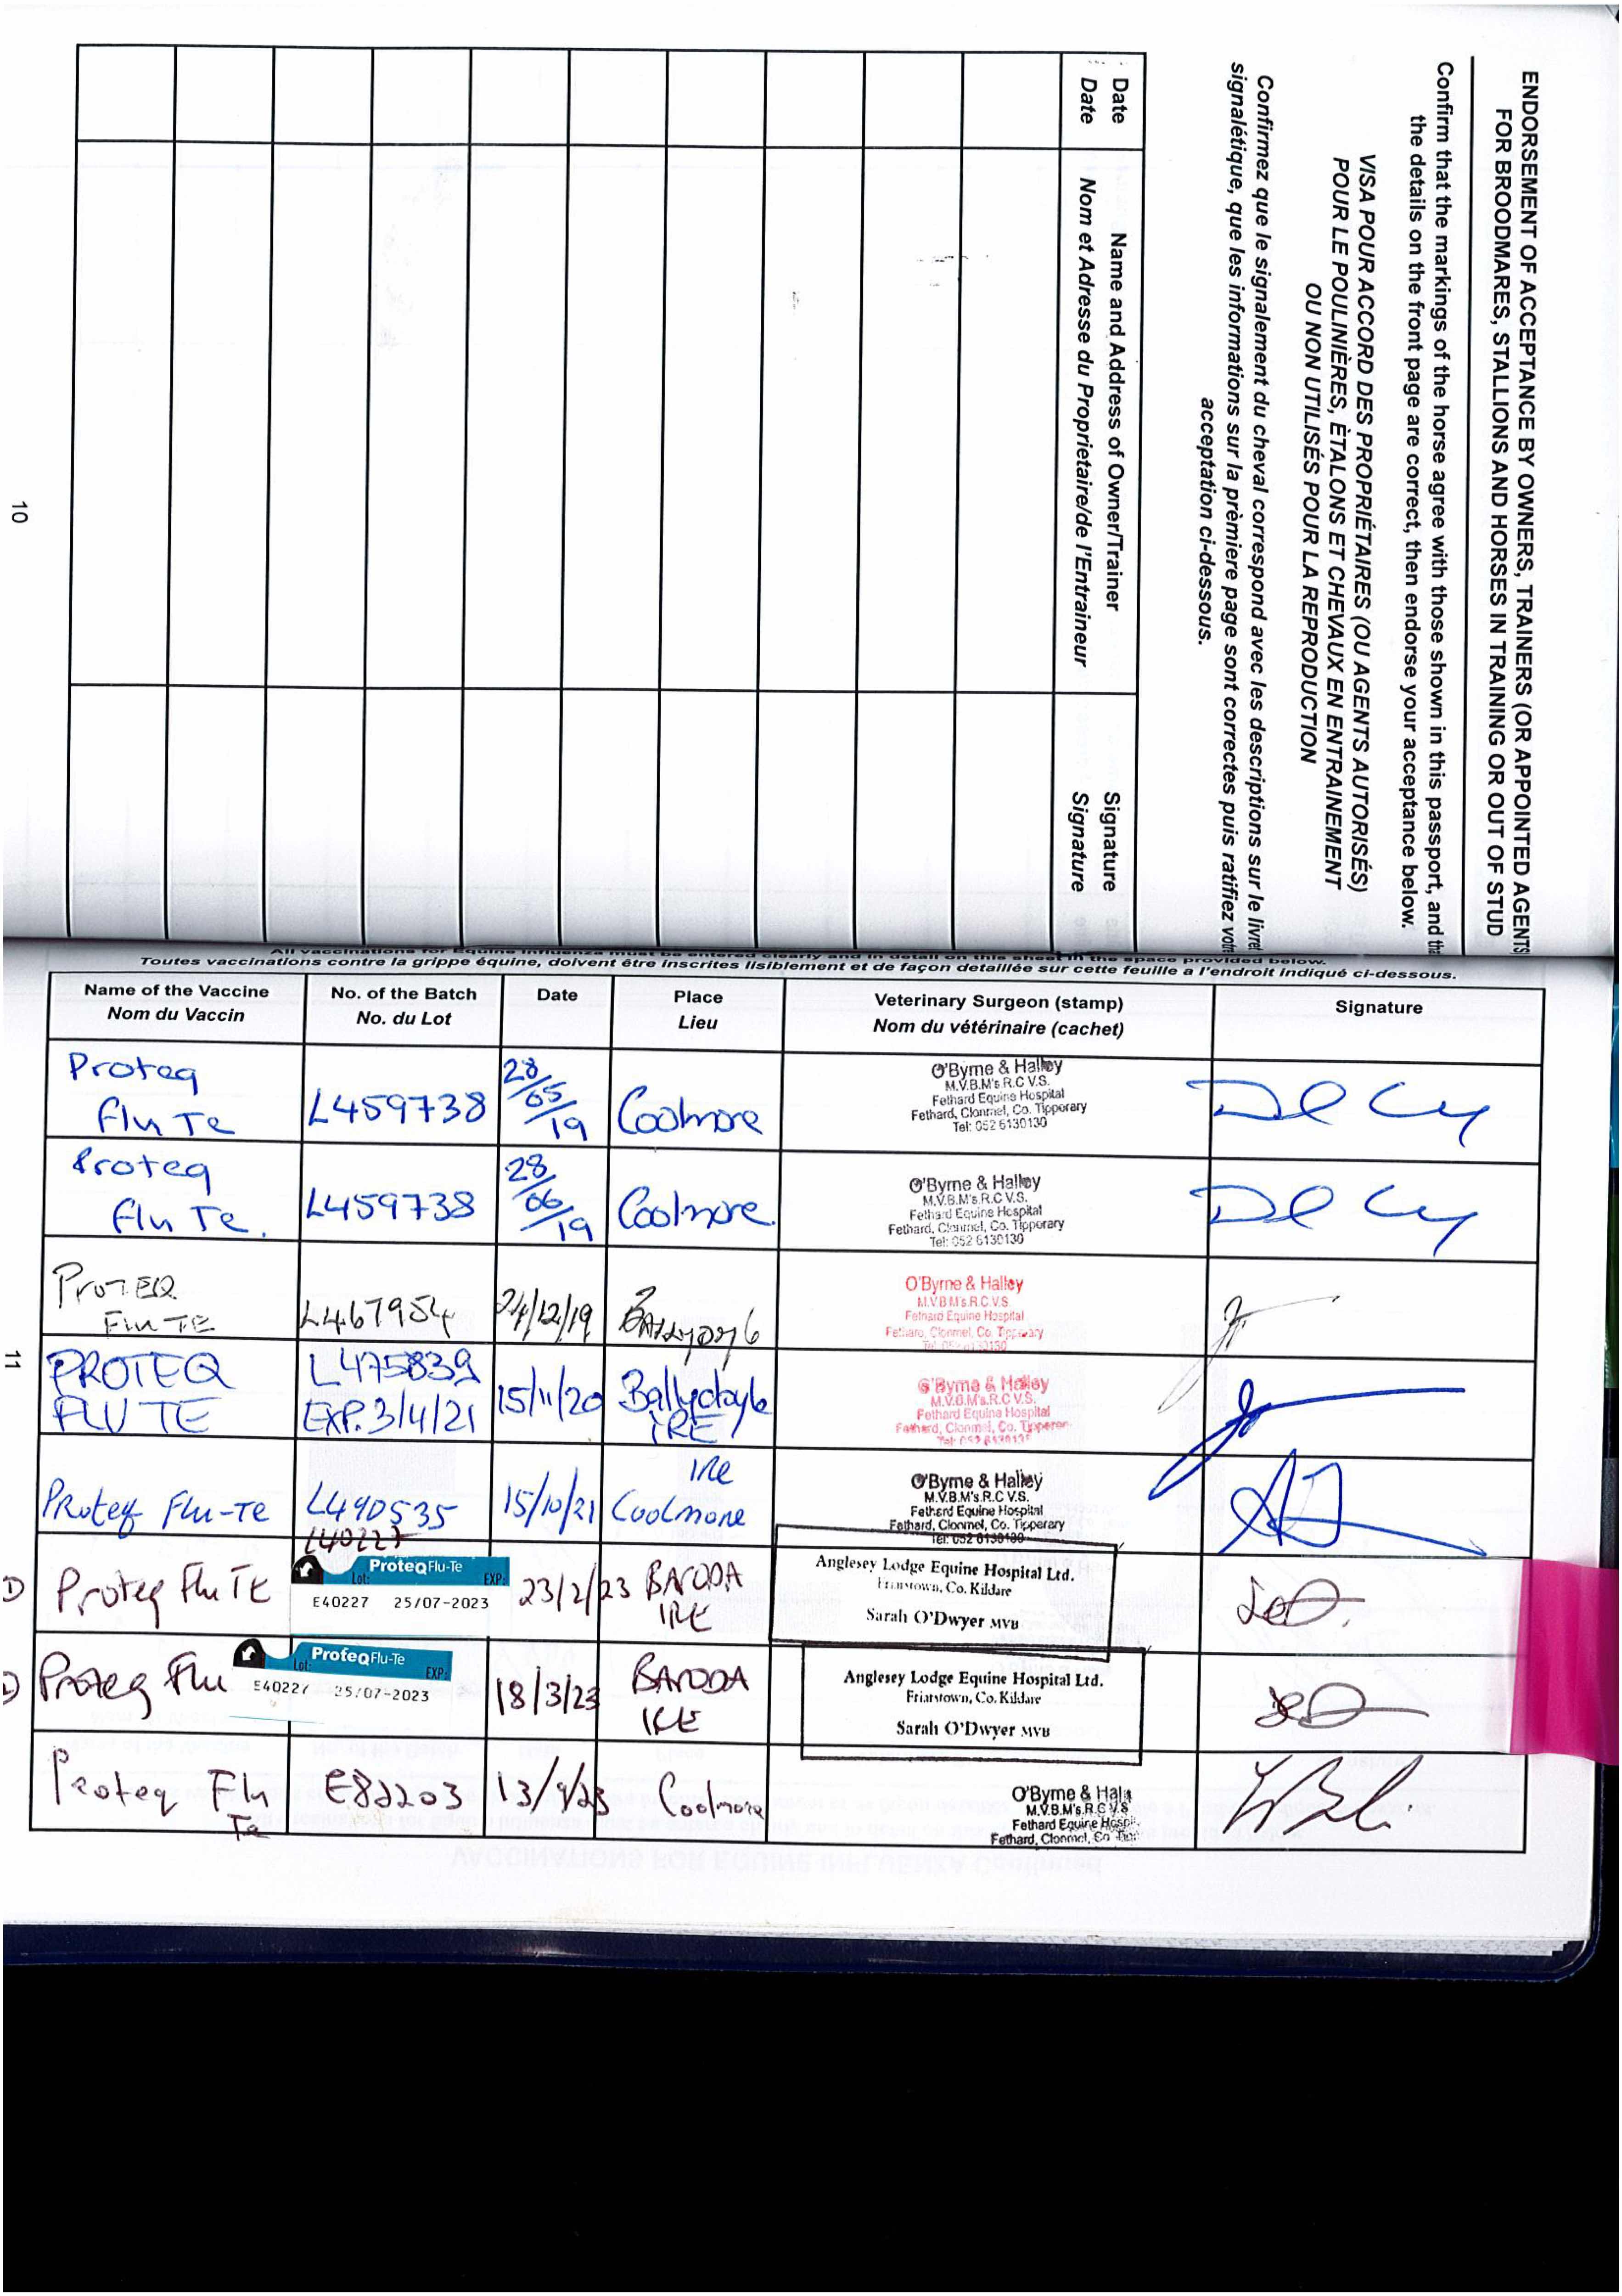 ENDORSEMENT OF ACCEPTANCE BY OWNERS, TRAINERS (OR APPOINTED AGENTS
FOR BROODMARES, STALLIONS AND HORSES IN TRAINING OR OUT OF STUD
Confirm that the markings of the horse agree with those shown in this passport, and
the details on the front page are correct, then endorse your acceptance below.
VISA POUR ACCORD DES PROPRIÉTAIRES (OU AGENTS AUTORISÉS)
POUR LE POULINIÈRES, ÈTALONS ET CHEVAUX EN ENTRAINEMENT
OU NON UTILISÉS POUR LA REPRODUCTION
Confirmez que le signalement du cheval correspond avec les descriptions sur le livre
signalétique, que les informations sur la prèmiere page sont correctes puis ratifiez
acceptation ci-dessous.
Date Name and Address of Owner/Trainer Signature
Date Nom et Adresse du Proprietaire/de l'Entraineur Signature
10
All vaccinations for Equine Influenza must be entered clearly and in detail on this sheet in the space provided below.
Toutes vaccinations contre la grippe équine, doivent être inscrites lisiblement et de façon detaillée sur cette feuille a l'endroit indiqué ci-dessous.
Name of the Vaccine No. of the Batch Date Place Veterinary Surgeon (stamp) Signature
Nom du Vaccin No. du Lot Lieu Nom du vétérinaire (cachet)
Proteq Flu Te L459738 28/05/19 Coolmore
O'Byrne & Halley
M.V.B.M's R.C V.S.
Fethard Equine Hospital
Fethard, Clonmel, Co. Tipporary
Tel: 052 6130130
Proteq Flu Te. L459738 28/06/19 Coolmore
O'Byrne & Halley
M.V.B.M's R.C V.S.
Fethard Equine Hospital
Fethard, Clonmel, Co. Tipporary
Tel: 052 6130130
PROTEQ FLU TE L467954 24/12/19
O'Byrne & Halley
M.V.B.M's R.C.V.S.
Fethard Equine Hospital
Fethard, Clonmel, Co. Tipperary
11
PROTEQ FLU TE L475839 EXP. 3/4/21 15/11/20 Ballydoyle IRE
O'Byrne & Halley
M.V.B.M's R.C V.S.
Fethard Equine Hospital
Fethard, Clonmel, Co.
Proteq Flu-Te L490535 15/10/21 IRe Coolmore
O'Byrne & Halley
M.V.B.M's R.C V.S.
Fethard Equine Hospital
Fethard, Clonmel, Co. Tipperary
Tel: 052 6130130
Proteq Flu TE
ProteQ Flu-Te
Lot: EXP:
E40227 25/07-2023
23/2/23 BARODA IRE
Anglesey Lodge Equine Hospital Ltd.
Friarstown, Co. Kildare
Sarah O'Dwyer MVB
Proteq Flu
ProteQ Flu-Te
Lot: EXP:
E40227 25/07-2023
18/3/23 BARODA IRE
Anglesey Lodge Equine Hospital Ltd.
Friarstown, Co. Kildare
Sarah O'Dwyer MVB
Proteq Flu Te E82203 13/9/23 Coolmore
O'Byrne &
M.V.B.M's R.C V.S
Fethard Equine
Fethard, Clonmel, Co